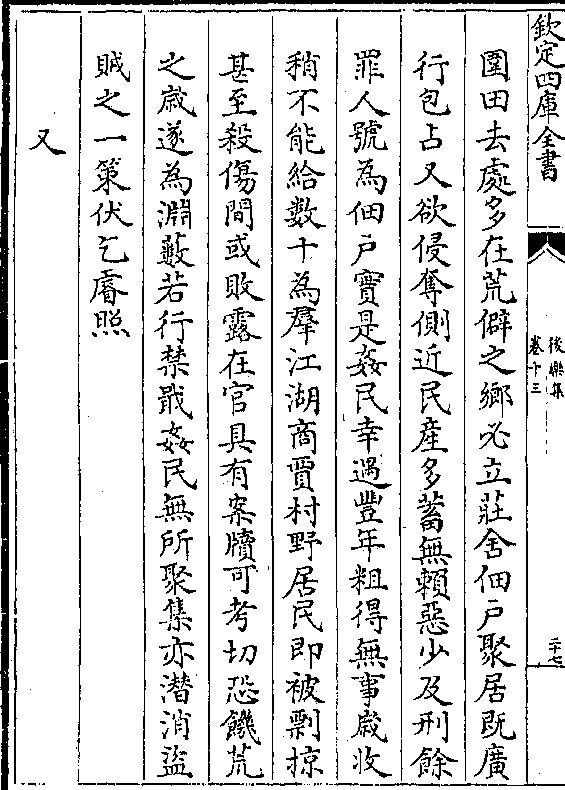 欽定四庫全書
後樂集
卷十三
二十七
圍田去處多在荒僻之鄉必立莊舍佃戶聚居既廣
行包占又欲侵奪側近民產多蓄無賴惡少及刑餘
罪人號為佃戶實是姦民幸遇豐年粗得無事歲收
稍不能給數十為羣江湖商賈村野居民即被剽掠
甚至殺傷間或敗露在官具有案牘可考切恐饑荒
之歲遂為淵藪若行禁戢姦民無所聚集亦潛消盜
賊之一策伏乞睿照
又